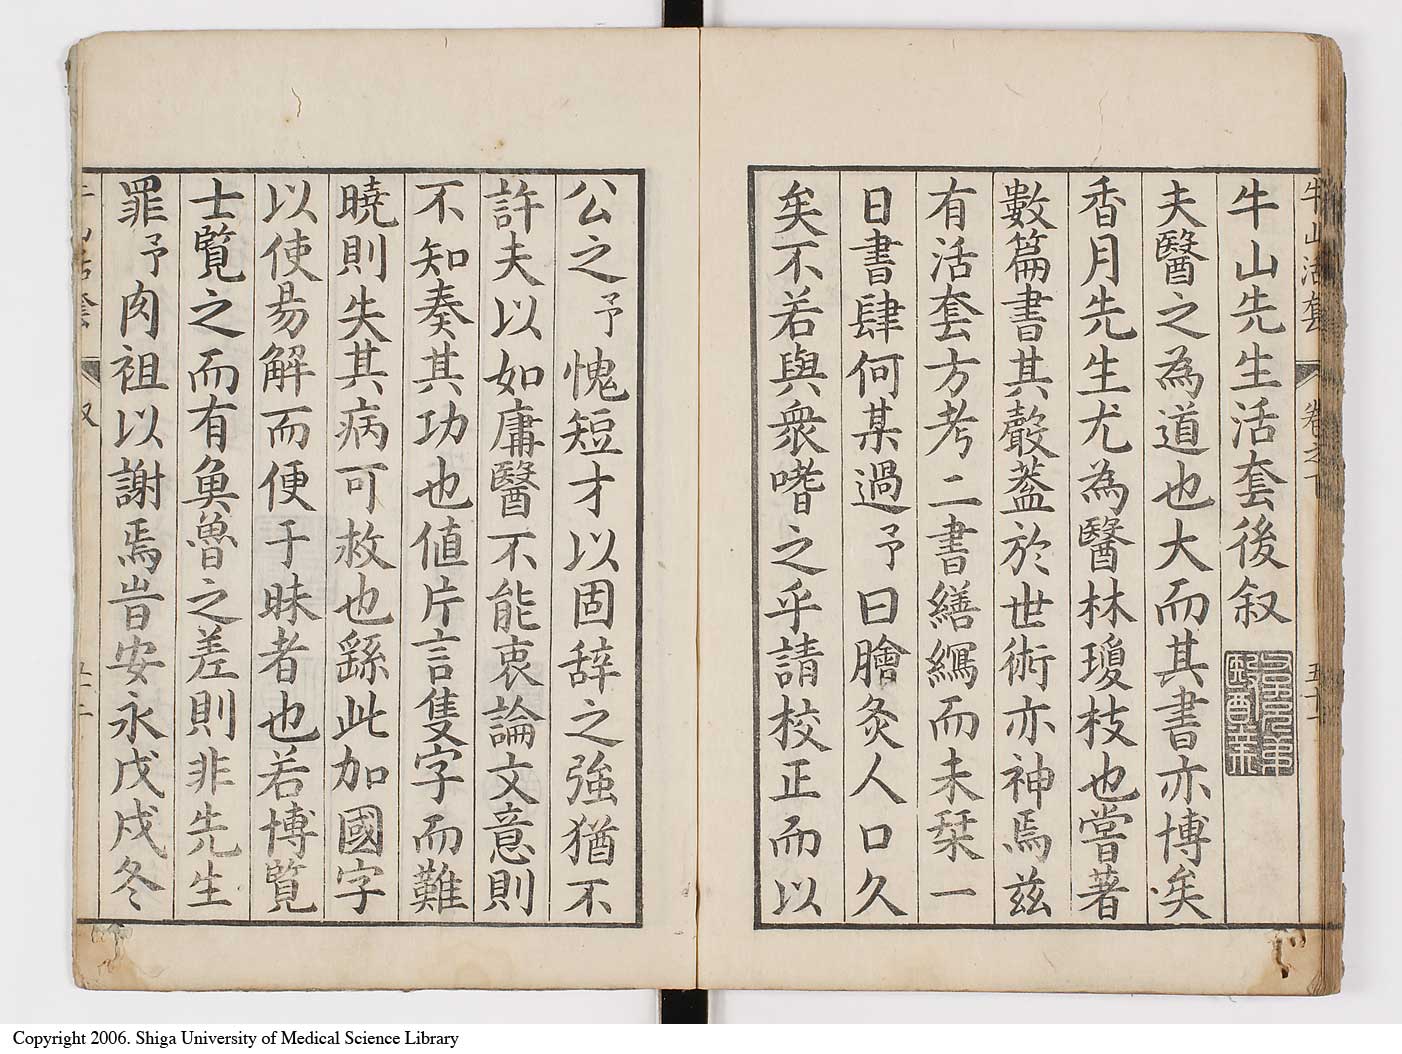 牛山活套
卷之下
牛山先生活套後叙
夫醫之為道也大而其書亦博矣
香月先生尤為醫林瓊枝也嘗著
數篇書其聲蓋於世術亦神焉兹
有活套方考二書繕寫而未栞一
日書肆何某過予曰膾炙人口久
矣不若與衆嗜之乎請校正而以
公之予愧短才以固辞之強猶不
許夫以如庸醫不能衷論文意則
不知奏其功也値片言隻字而難
曉則失其病可救也繇此加國字
以使易解而便于昧者也若博覧
士覧之而有魚魯之差則非先生
罪予肉袒以謝焉旹安永戊戌冬
叙
Copyright 2006. Shiga University of Medical Science Library